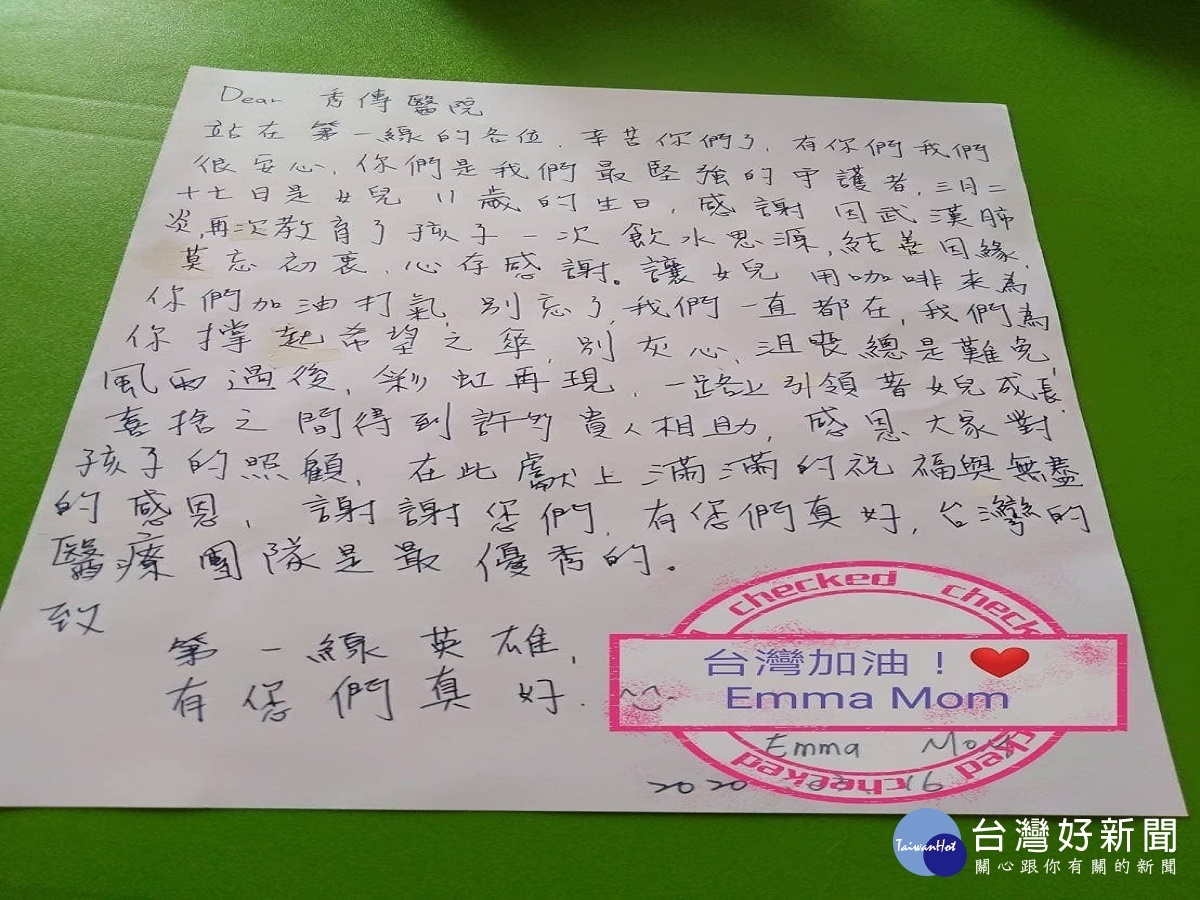 Dear 秀傳醫院
站在第一線的各位，辛苦你們了，有你們我們
很安心，你們是我們最堅強的守護者，三月二
十七日是女兒11歲的生日，感謝因武漢肺
炎，再次教育了孩子一次飲水思源，結善因緣，
莫忘初衷，心存感謝。讓女兒用咖啡來為
你們加油打氣，別忘了，我們一直都在，我們為
你撐起希望之傘，別灰心，沮喪總是難免，
風雨過後，彩虹再現，一路上引領著女兒成長，
喜捨之間得到許多貴人相助，感恩大家對
孩子的照顧，在此獻上滿滿的祝福與無盡
的感恩，謝謝您們，有您們真好，台灣的
醫療團隊是最優秀的。
致
第一線英雄，
有您們真好。
checked check
台灣加油！❤
Emma Mom
Emma Mom
2020 16
checked
台灣好新聞
TaiwanHot
關心跟你有關的新聞